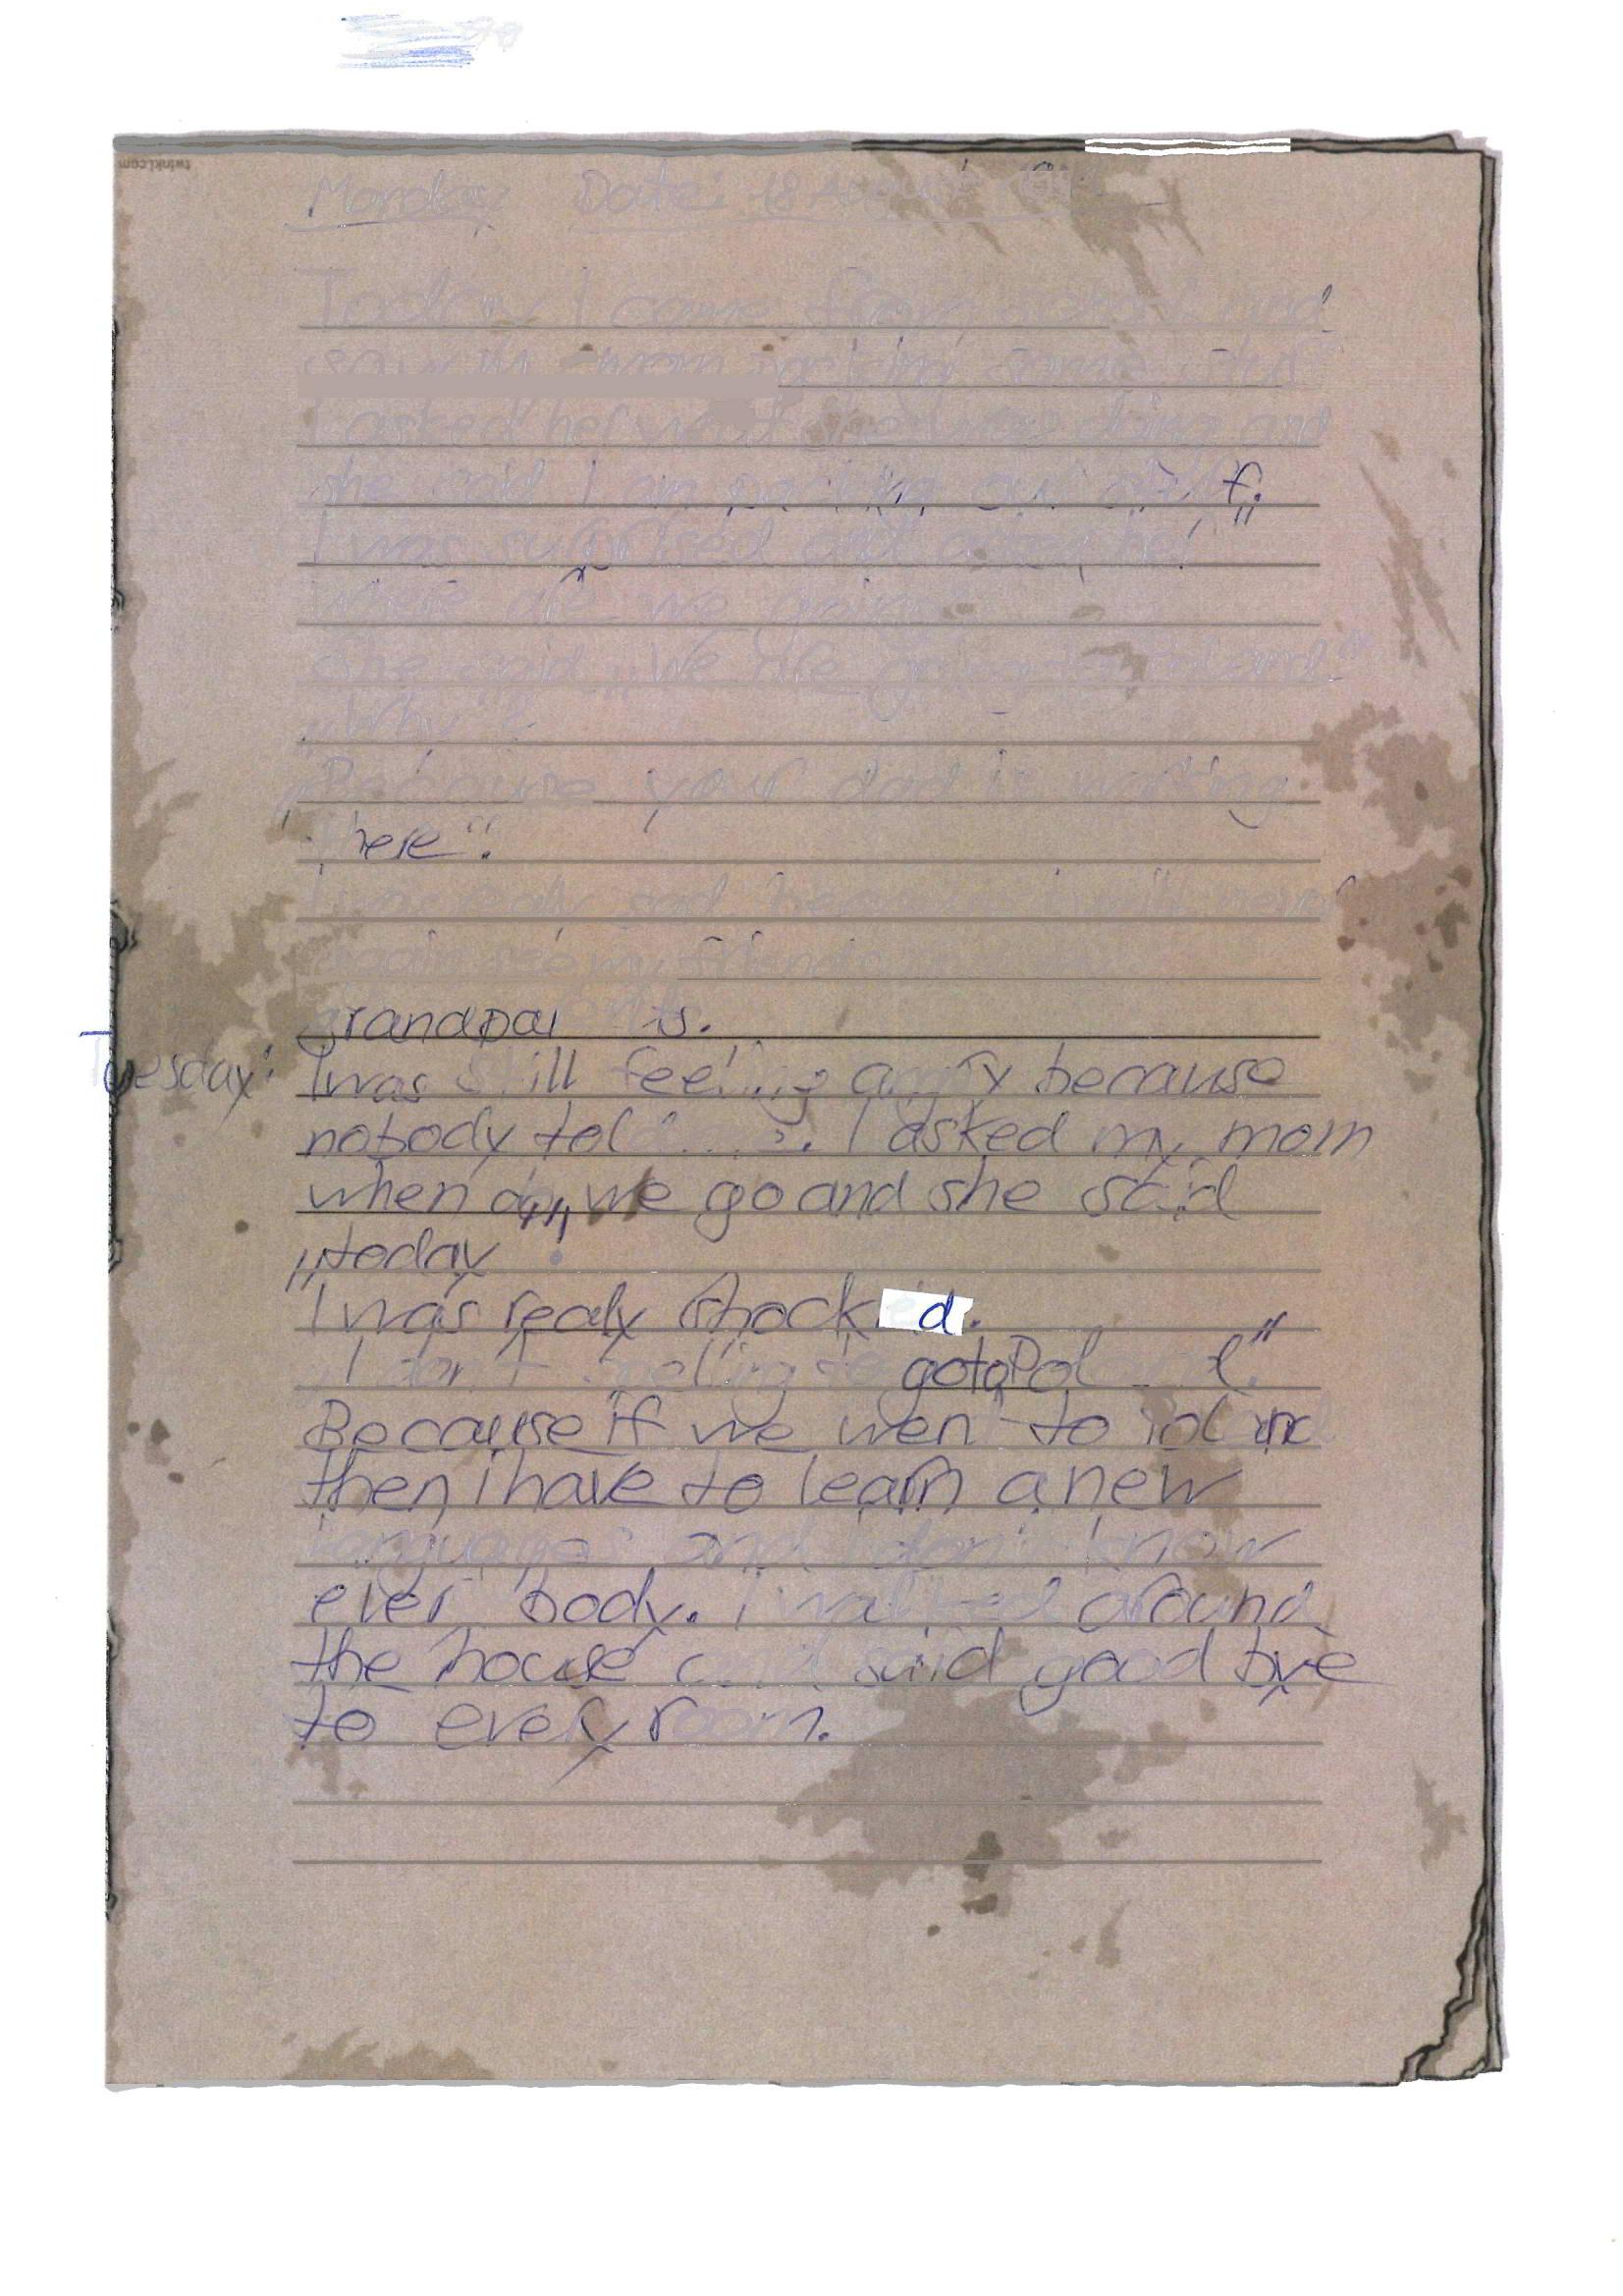 twinkl.com
Monday Date: 18 August
Today I came from school and
saw my mom packing some stuff
I asked her what she was doing and
she said I am packing our stuff.
I was surprised and asked her "
where are we going
She said „We are going to Poland"
„Why?
„Because your dad is working
there".
I was realy sad because I will never
again see my friends
grandparents.
Tuesday: I was still feeling angry because
nobody told me. I asked my mom
when do we go and she said
„today".
I was realy shocked.
„I don't to go to Poland."
Because if we went to Poland
then i have to learn a new
languages and i don't know
every body. I walked around
the house and said good bye
to every room.